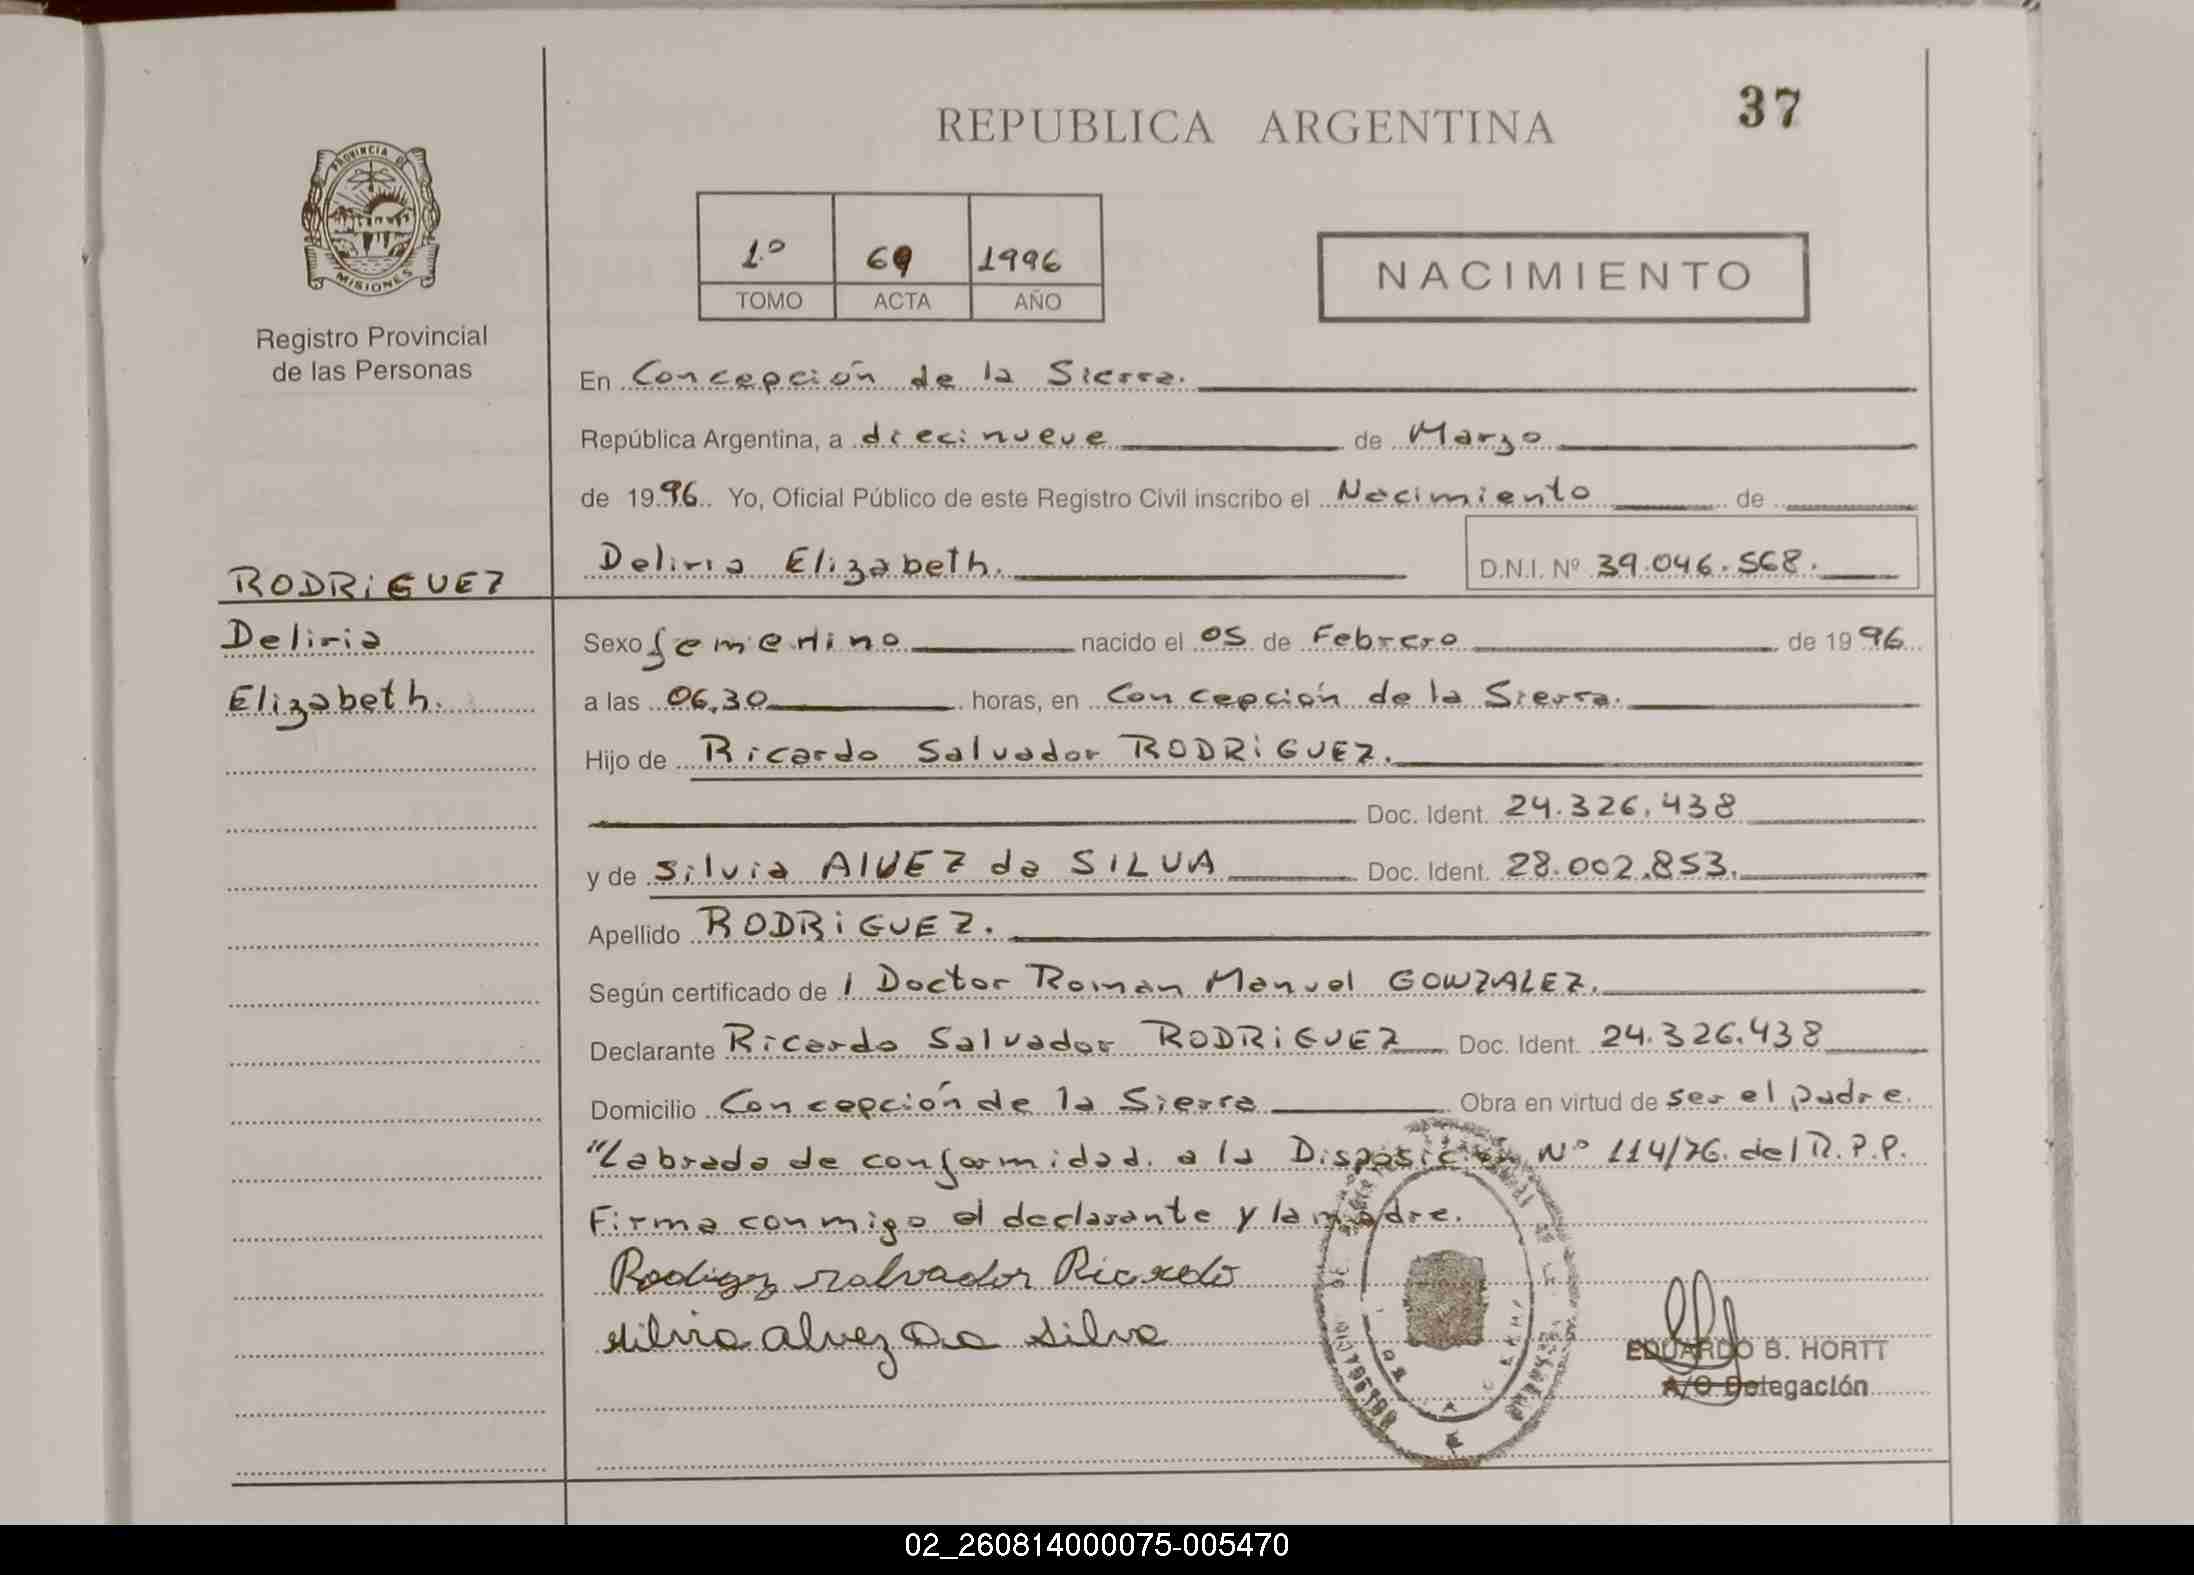 REPUBLICA ARGENTINA
37
PROVINCIA DE
MISIONES
Registro Provincial
de las Personas
1º 69 1996
TOMO ACTA AÑO
NACIMIENTO
En Concepción de la Sierra.
República Argentina, a diecinueve de Marzo
de 1996 Yo, Oficial Público de este Registro Civil inscribo el Nacimiento de
Deliria Elizabeth. D.N.I. Nº 39.046.568.
RODRIGUEZ
Deliria
Elizabeth.
Sexo femenino nacido el 05 de Febrero de 1996
a las 06,30 horas, en Concepción de la Sierra.
Hijo de Ricardo Salvador RODRIGUEZ.
Doc. Ident. 24.326.438
y de Silvia AlVEZ da SILVA Doc. Ident. 28.002.853.
Apellido RODRIGUEZ.
Según certificado de l Doctor Roman Manuel GONZALEZ.
Declarante Ricardo Salvador RODRIGUEZ Doc. Ident. 24.326.438
Domicilio Concepción de la Sierra Obra en virtud de ser el padre.
"Labrada de conformidad a la Disposición Nº 114/76. del R.P.P.
Firma conmigo el declarante y la madre.
Rodigez salvador Ricardo
silvia alvez Da Silva
EDUARDO B. HORTT
A/C Delegación
02_260814000075-005470